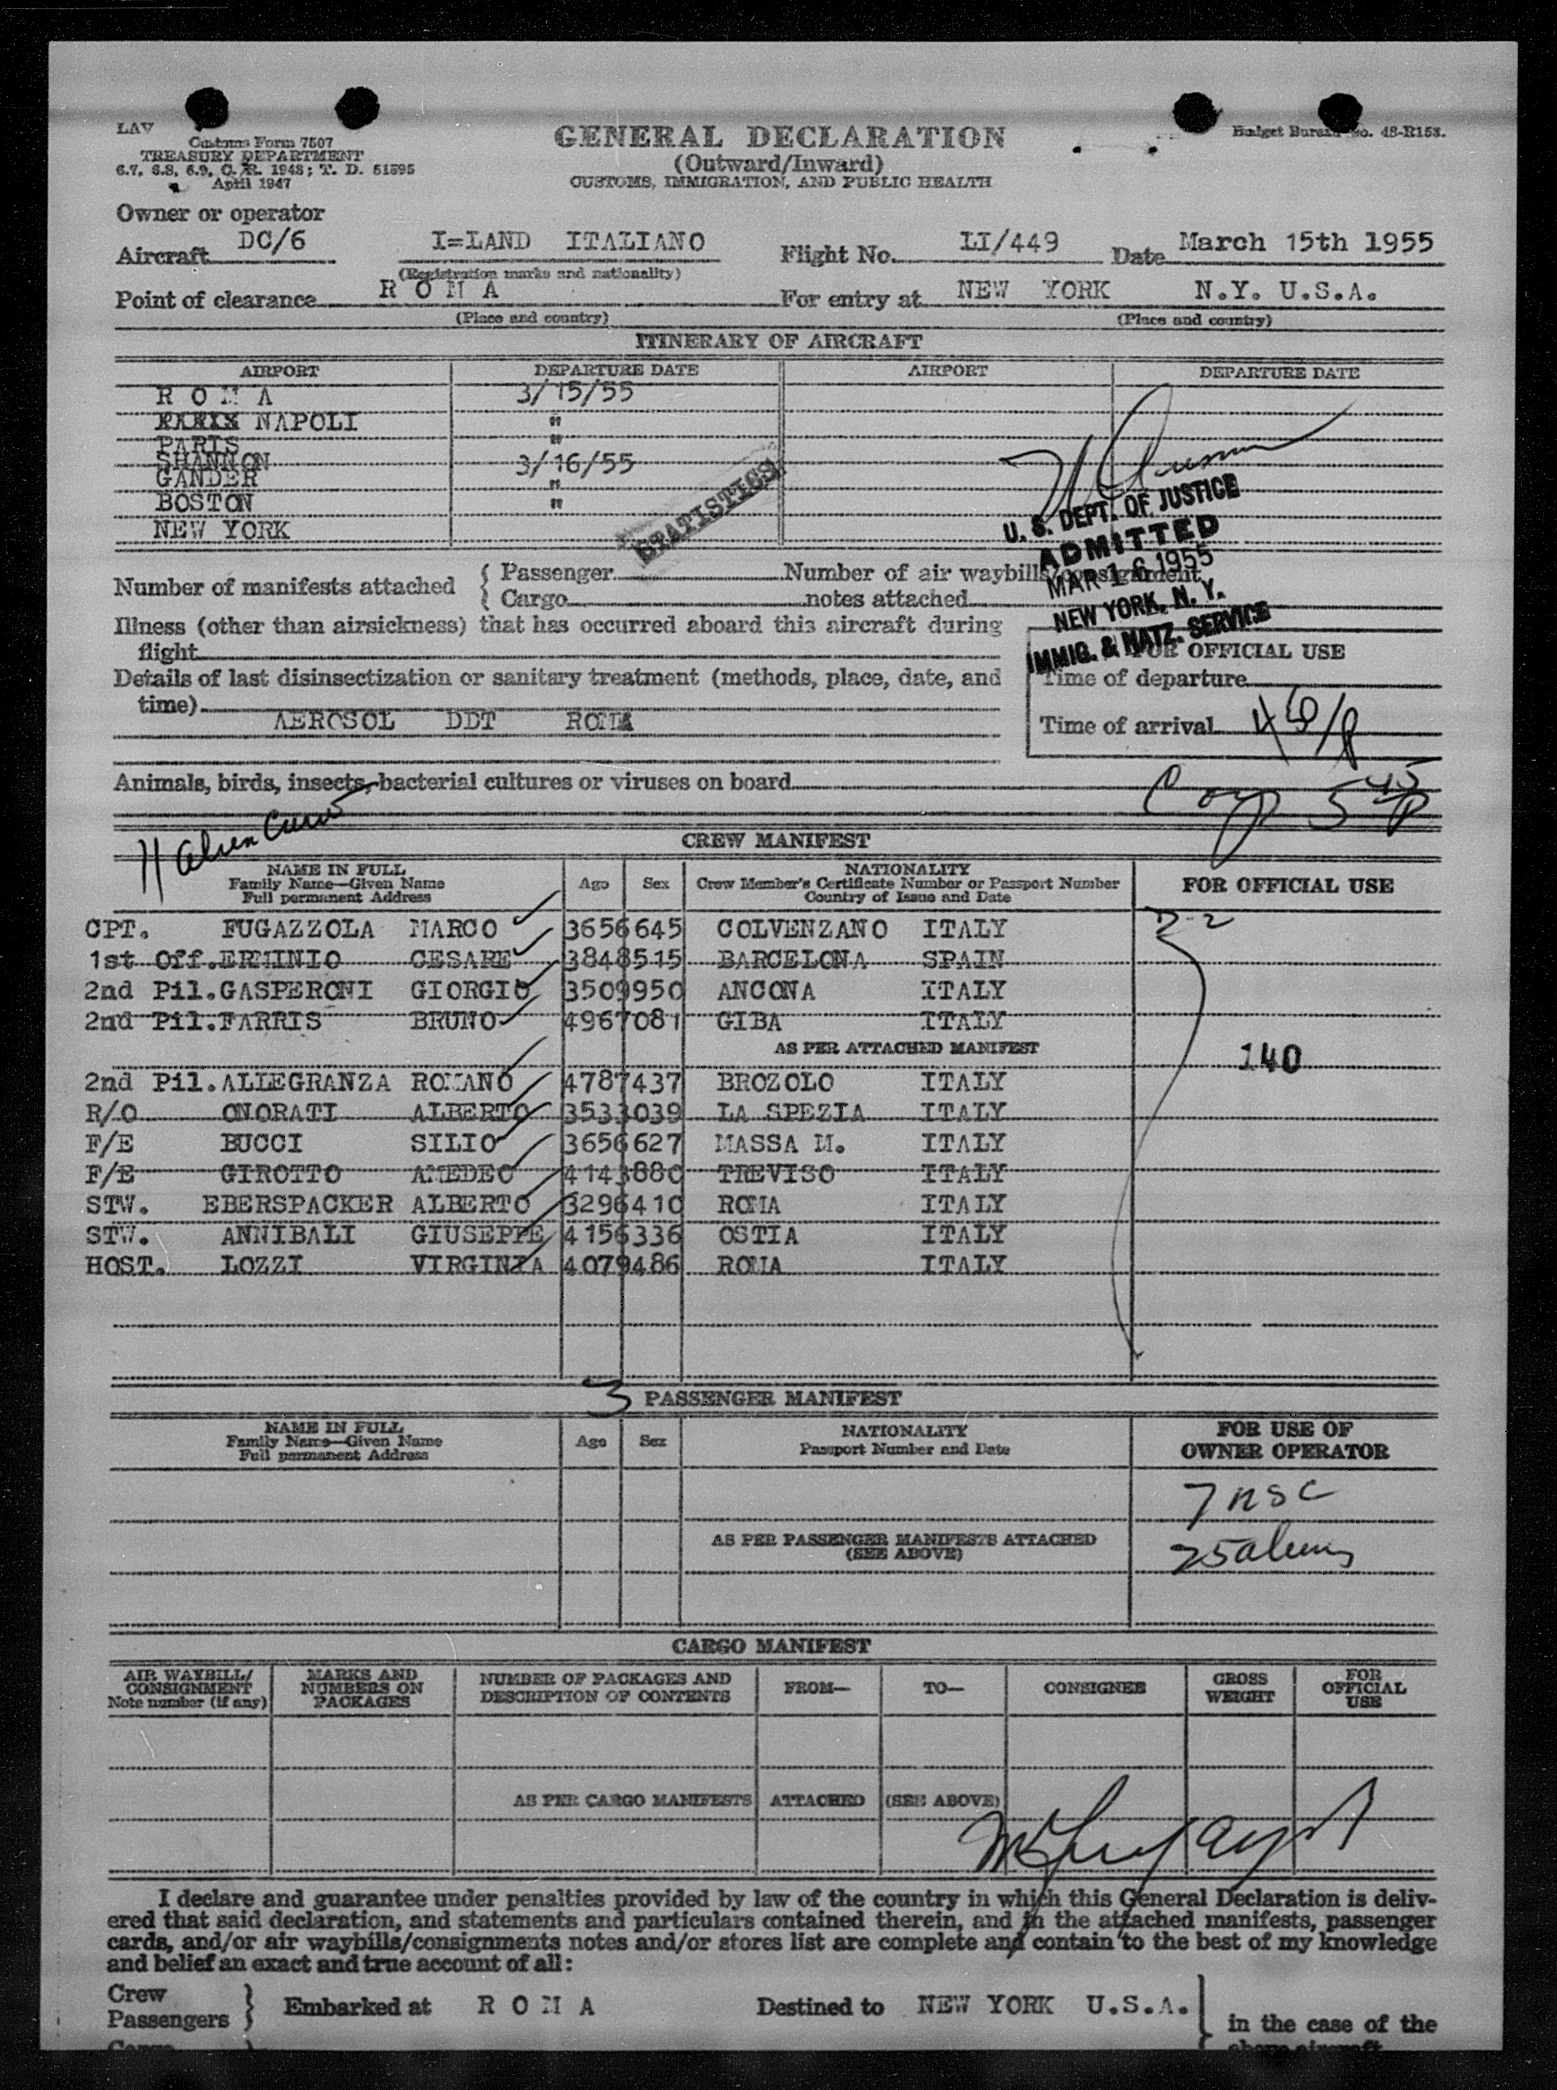 LAV
Customs Form 7507
TREASURY DEPARTMENT
6.7, 6.8, 6.9, C. R. 1948; T. D. 51595
April 1947
GENERAL DECLARATION
(Outward/Inward)
CUSTOMS, IMMIGRATION, AND PUBLIC HEALTH
Budget Bureau No. 48-R153.
Owner or operator
Aircraft DC/6 I=LAND ITALIANO Flight No. LI/449 Date March 15th 1955
(Registration marks and nationality)
Point of clearance R O M A For entry at NEW YORK N.Y. U.S.A.
(Place and country) (Place and country)
ITINERARY OF AIRCRAFT
AIRPORT DEPARTURE DATE AIRPORT DEPARTURE DATE
R O M A 3/15/55
PARIS NAPOLI "
PARIS "
SHANNON 3/16/55
GANDER "
BOSTON "
NEW YORK
STATISTICS
U. S. DEPT. OF JUSTICE
ADMITTED
MAR 16 1955
NEW YORK, N. Y.
IMMIG. & NATZ. SERVICE
Number of manifests attached { Passenger Number of air waybills/consignment
Cargo notes attached
Illness (other than airsickness) that has occurred aboard this aircraft during
flight
FOR OFFICIAL USE
Details of last disinsectization or sanitary treatment (methods, place, date, and
time)
AEROSOL DDT ROMA
Time of departure
Time of arrival
Animals, birds, insects, bacterial cultures or viruses on board
5 45 P
11 alien crew
CREW MANIFEST
NAME IN FULL
Family Name—Given Name
Full permanent Address
Age Sex
NATIONALITY
Crew Member's Certificate Number or Passport Number
Country of Issue and Date
FOR OFFICIAL USE
CPT. FUGAZZOLA MARCO 3656645 COLVENZANO ITALY
1st Off. ERMINIO CESARE 3848515 BARCELONA SPAIN
2nd Pil. GASPERONI GIORGIO 3509950 ANCONA ITALY
2nd Pil. FARRIS BRUNO 4967081 GIBA ITALY
AS PER ATTACHED MANIFEST
140
2nd Pil. ALLEGRANZA ROMANO 4787437 BROZOLO ITALY
R/O ONORATI ALBERTO 3533039 LA SPEZIA ITALY
F/E BUCCI SILIO 3656627 MASSA M. ITALY
F/E GIROTTO AMEDEO 4143880 TREVISO ITALY
STW. EBERSPACKER ALBERTO 3296410 ROMA ITALY
STW. ANNIBALI GIUSEPPE 4156336 OSTIA ITALY
HOST. LOZZI VIRGINIA 4079486 ROMA ITALY
3 PASSENGER MANIFEST
NAME IN FULL
Family Name—Given Name
Full permanent Address
Age Sex
NATIONALITY
Passport Number and Date
FOR USE OF
OWNER OPERATOR
7 nsc
AS PER PASSENGER MANIFESTS ATTACHED
(SEE ABOVE)
25 aliens
CARGO MANIFEST
AIR WAYBILL/
CONSIGNMENT
Note number (if any)
MARKS AND
NUMBERS ON
PACKAGES
NUMBER OF PACKAGES AND
DESCRIPTION OF CONTENTS
FROM—
TO—
CONSIGNEE
GROSS
WEIGHT
FOR
OFFICIAL
USE
AS PER CARGO MANIFESTS ATTACHED (SEE ABOVE)
I declare and guarantee under penalties provided by law of the country in which this General Declaration is deliv-
ered that said declaration, and statements and particulars contained therein, and in the attached manifests, passenger
cards, and/or air waybills/consignments notes and/or stores list are complete and contain to the best of my knowledge
and belief an exact and true account of all:
Crew
Passengers } Embarked at R O M A Destined to NEW YORK U.S.A. in the case of the
Cargo above aircraft